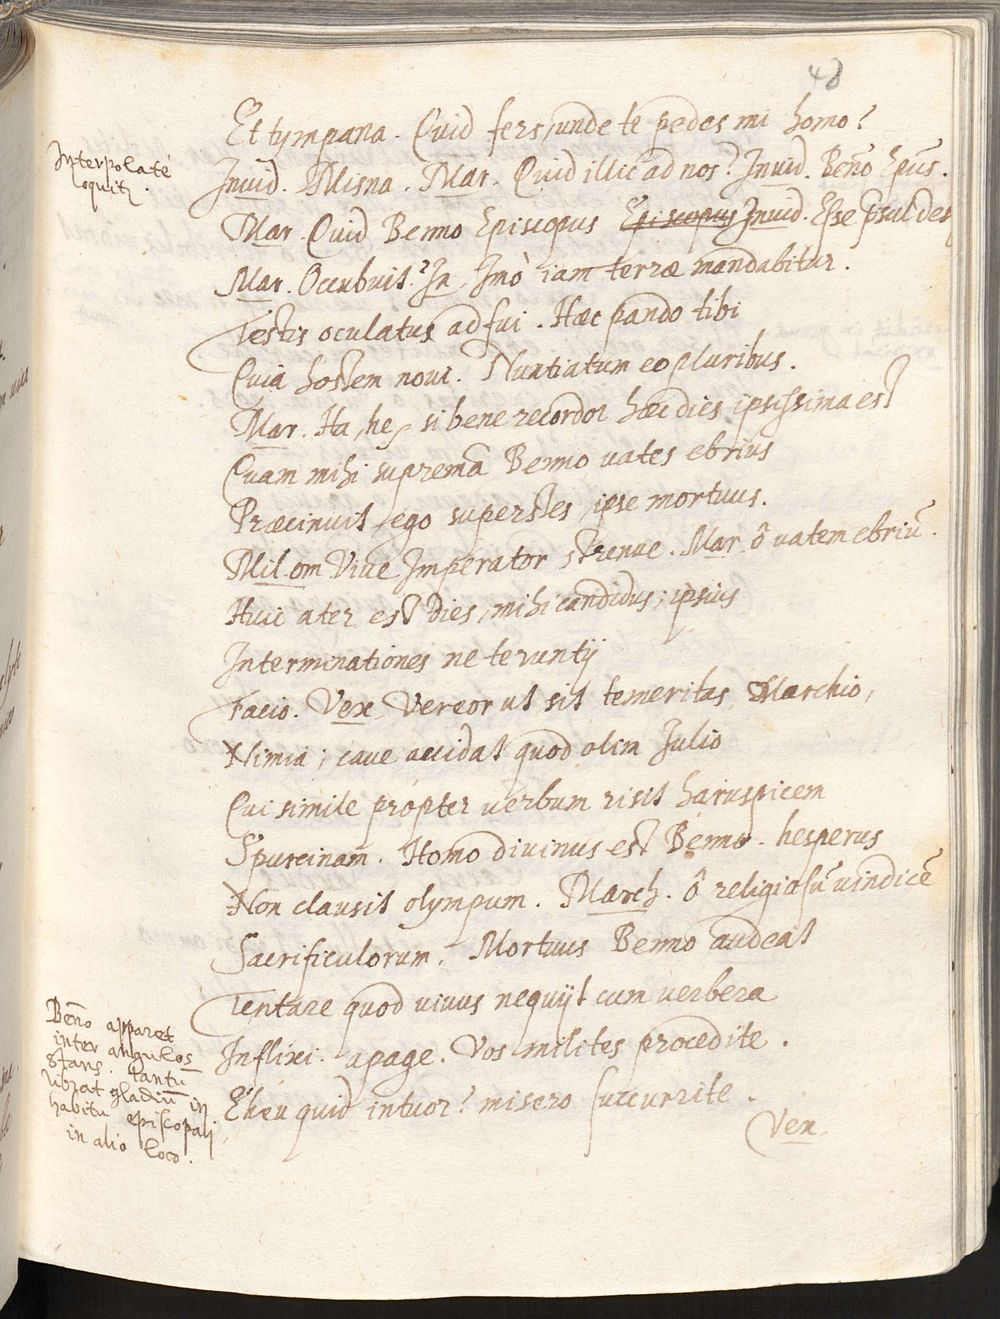 48
Et tympana. Quid fers, unde te pedes mi homo?
Interpolatè
loquitr.
Invid. Misna. Mar. Quid illic ad nos? Invid. Beño Epũs.
Mar. Quid Benno Episcopus Episcopus Invid. Esse
Mar. Occubuit? In Imò iam terræ mandabitur.
Testis oculatus adfui. Hæc pando tibi
Quia hostem noui. Nuntiatum eo pluribus.
Mar. Ha, he, si bene recordor hæc dies ipsissima est
Quam mihi supremã Benno vates ebrius
Præcinuit, ego superstes, ipse mortuus.
Mil. om Viue Imperator strenue. Mar. ô vatem ebriũ.
Huic ater est dies, mihi candidus; ipsius
Interminationes ne teruntij
Facio. Vex. Vereor ut sit temeritas Marchio,
Nimia; caue accidat quod olim Julio
Cui simile propter verbum risit haruspicem
Spurcinam. Homo divinus est Benno. hesperus
Non clausit olympum. March. ô religiosũ vindicẽ
Sacrificulorum. Mortuus Benno audeat
Tentare quod vivus nequijt cum verbera
Inflixi. apage. Vos milites procedite.
Eheu quid intuor? misero succurrite.
Beño apparet
inter angulos
stans. tantũ
vibrat gladiũ in
habitu episcopali
in alio loco.
Vex